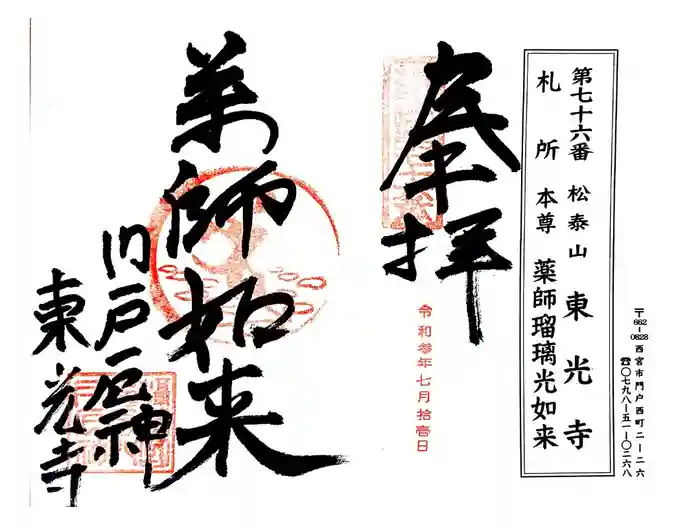 第七十六番 松泰山 東光寺
札所 本尊 薬師瑠璃光如来
〒662-0828 西宮市門戸西町二―二六
☎〇七九八―五一―〇二六八
奉拝
令和参年七月拾壱日
薬師如来
門戸厄神
東光寺